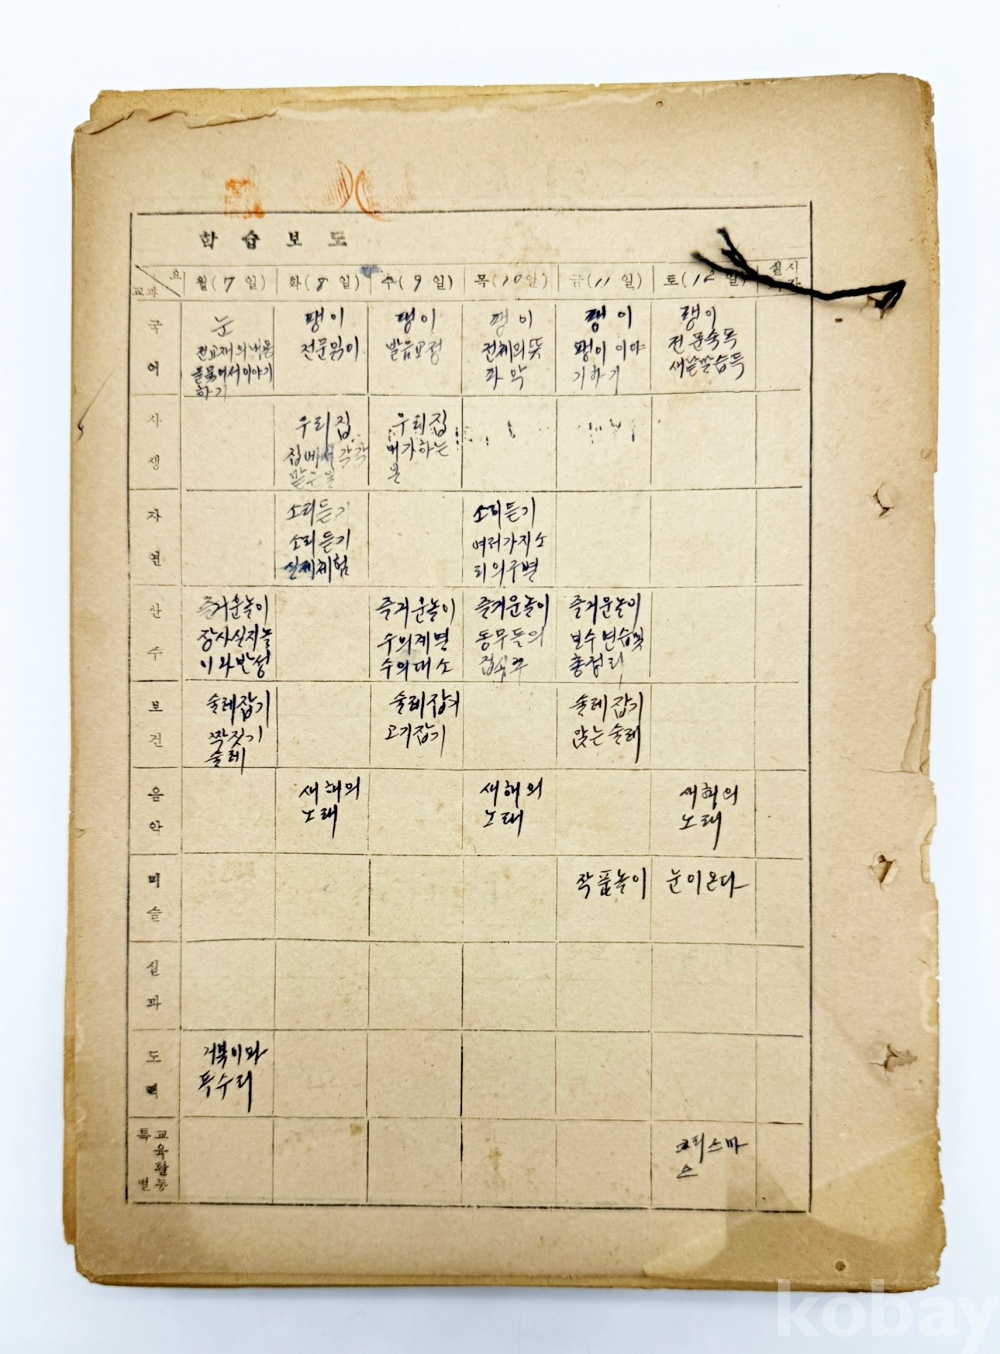 학습보도
요
교과
월(7일) 화(8일) 수(9일) 목(10일) 금(11일) 토(12일) 실시
국어
눈
전교재의 내용
하기
팽이
전문읽이
팽이
발음교정
팽이
전체의 뜻
파악
팽이
팽이 이야
기하기
팽이
전문숙독
새낱말습득
사생
우리집
집에서 각각
우리집
내가하는
자연
소리듣기
소리듣기
실제체험
소리듣기
여러가지소
리의구별
산수
즐거운놀이
장사실지놀
이와반성
즐거운놀이
수의계열
수의대소
즐거운놀이
동무들의
즐거운놀이
보수연습및
총정리
보건
술레잡기
짝짓기
술레
술레잡기
고기잡기
술레잡기
앉는술레
음악
새해의
노래
새해의
노래
새해의
노래
미술
작품놀이
눈이온다
실과
도덕
거북이와
독수리
특별
교육활동
크리스마
스
kobay